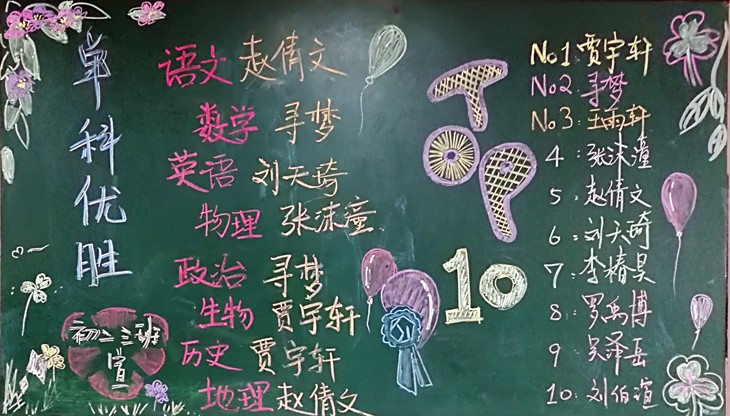 单科优胜
语文 赵倩文
数学 寻梦
英语 刘天琦
物理 张沫潼
政治 寻梦
生物 贾宇轩
历史 贾宇轩
地理 赵倩文
初二三班
宣
TOP
10
No1 贾宇轩
No2 寻梦
No3: 王雨轩
4: 张沫潼
5: 赵倩文
6: 刘天琦
7: 李椿昊
8: 罗禹博
9 吴泽岳
10: 刘伯谊